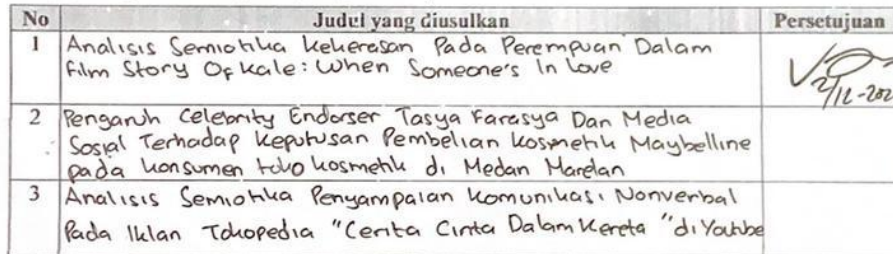 No Judul yang diusulkan Persetujuan
1 Analisis Semiotika kekerasan Pada Perempuan Dalam
Film Story Of Kale: When Someone's In Love
2/12-202
2 Pengaruh Celebrity Endorser Tasya Farasya Dan Media
Sosial Terhadap Keputusan Pembelian Kosmetik Maybelline
pada konsumen toko kosmetik di Medan Marelan
3 Analisis Semiotika Penyampaian Komunikasi Nonverbal
Pada Iklan Tokopedia "Cerita Cinta Dalam Kereta" di Youtube